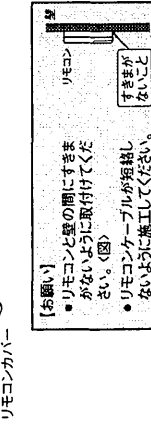 リモコンカバー
【お願い】
●リモコンと壁の間にすきま
がないように取付けてくだ
さい。〈図〉
●リモコンケーブルが短絡し
ないように施工してください。
壁
リモコン
すきまが
ないこと